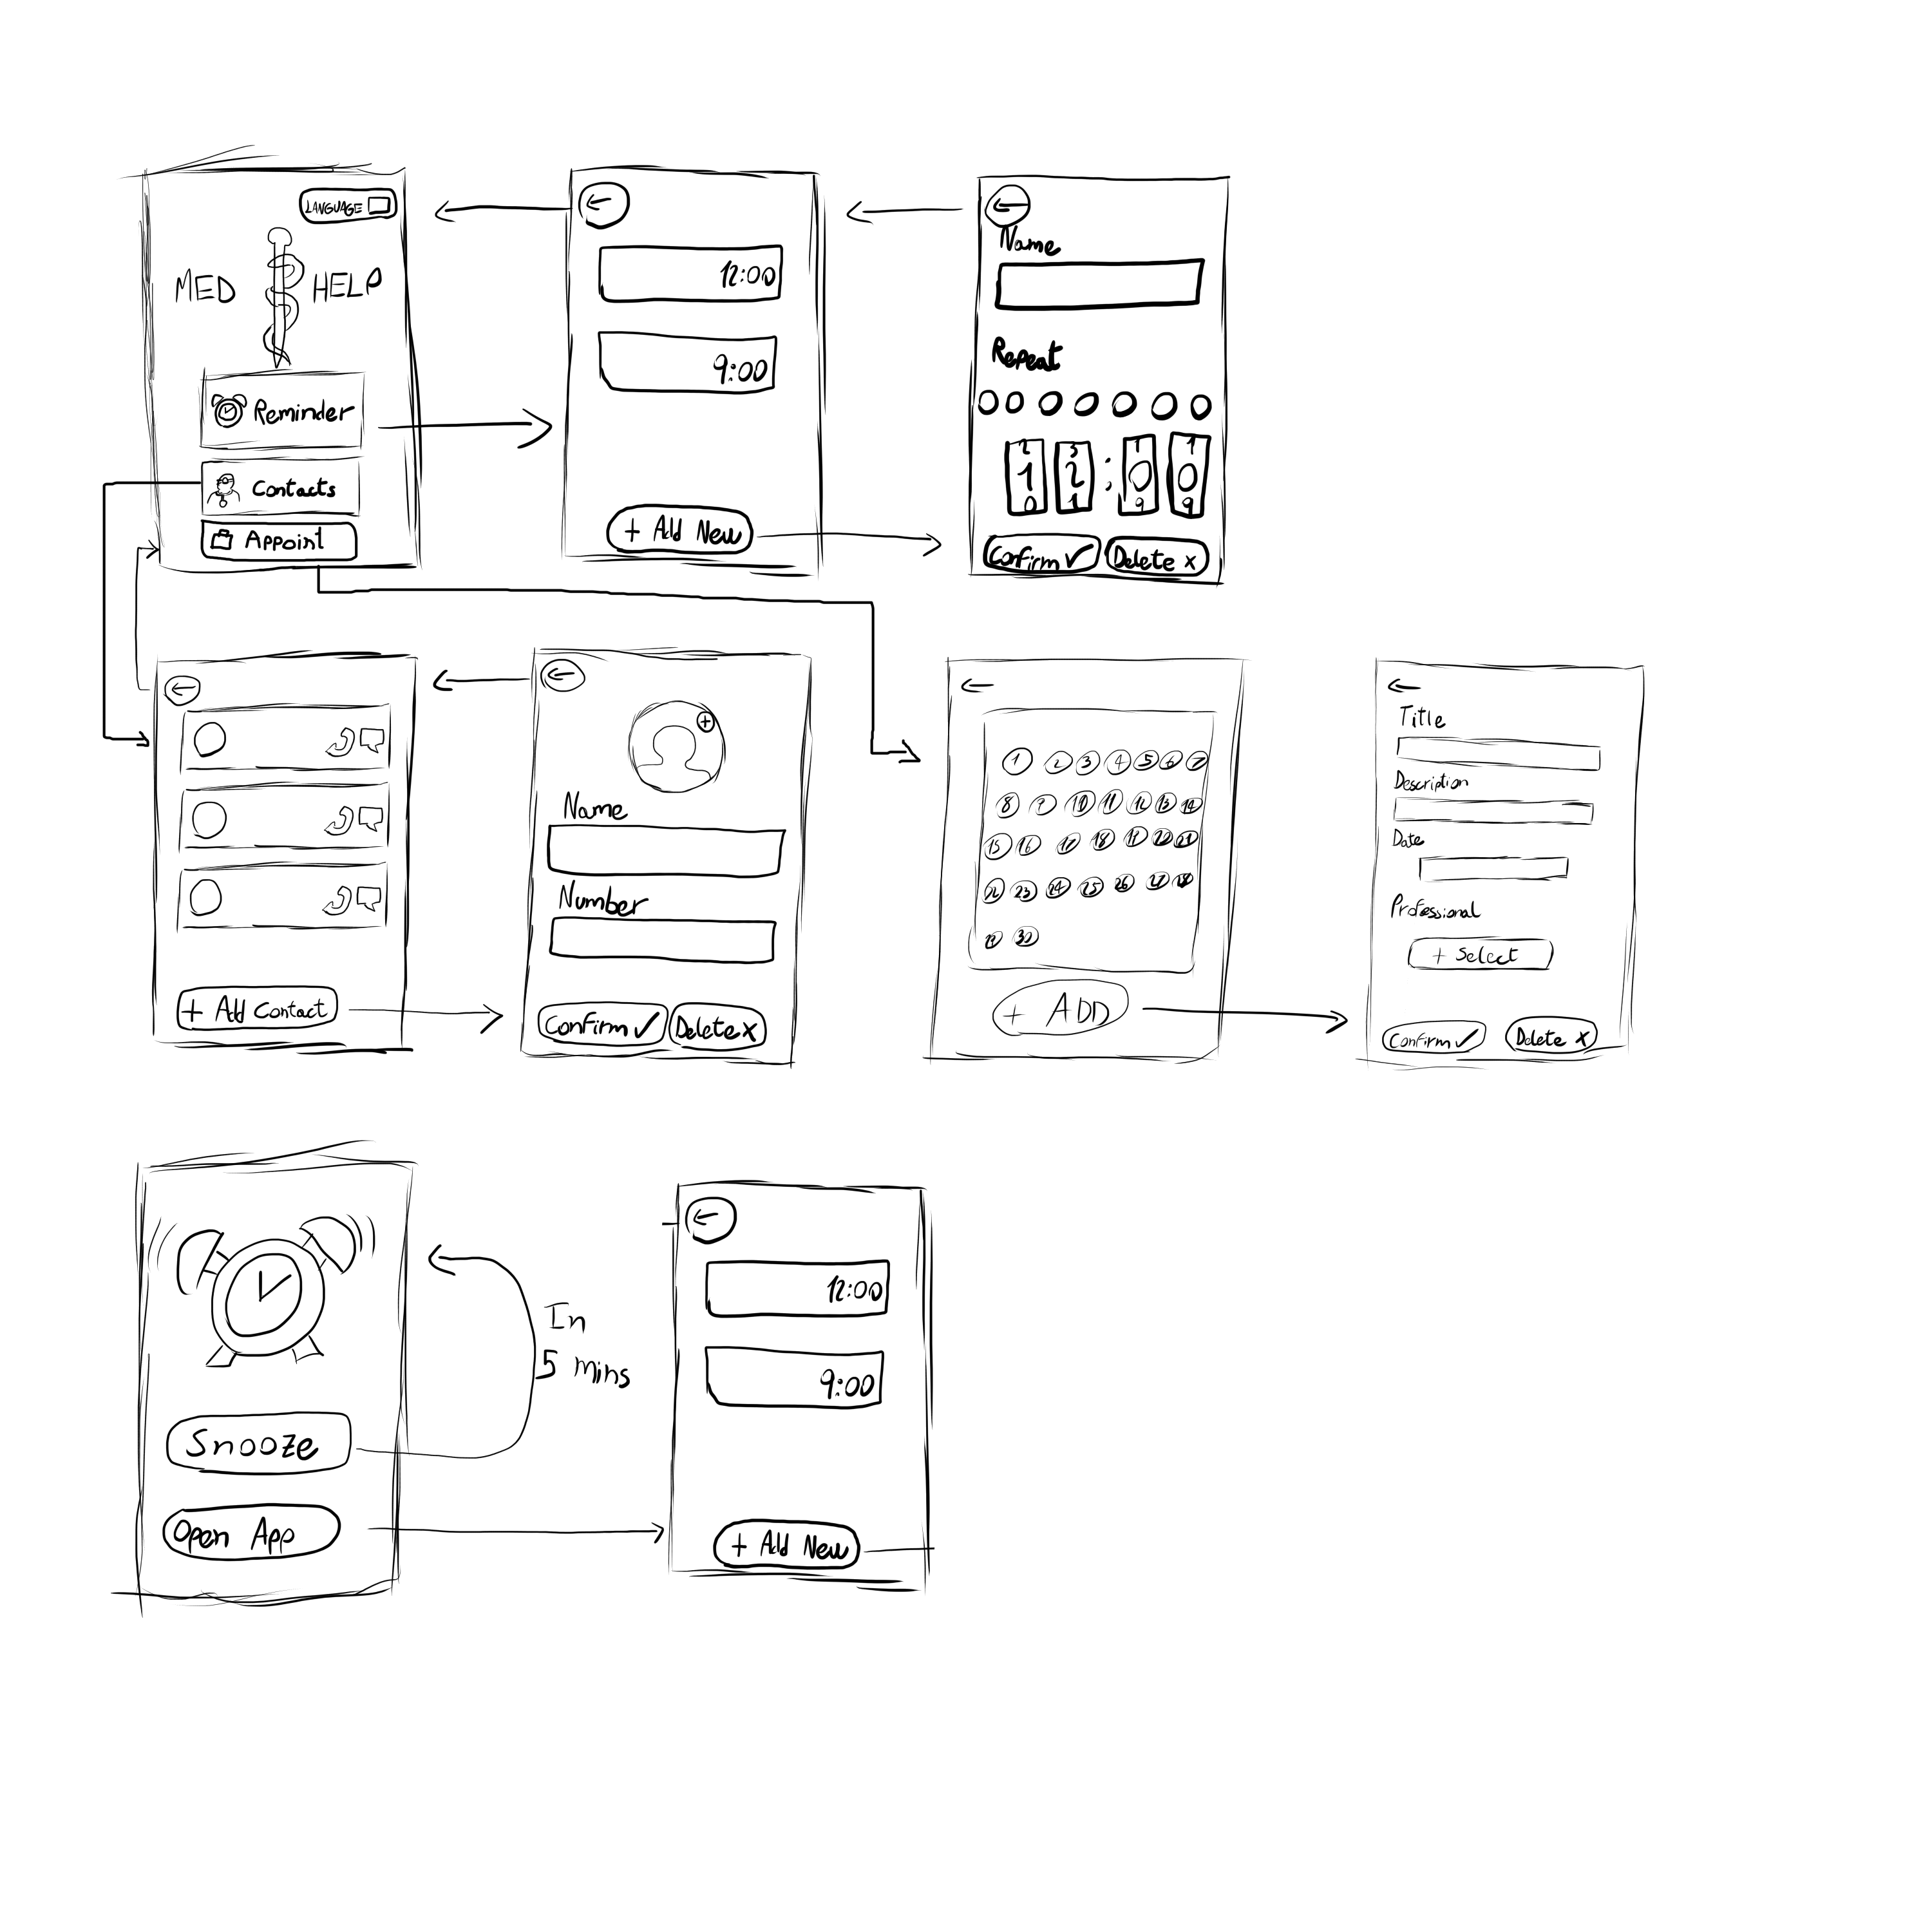 LANGUAGE
MED HELP
Reminder
Contacts
Appoint
12:00
9:00
+ Add New
Name
Repeat
2 3 1 1
1 2 : 0 0
0 1 9 9
Confirm ✓ Delete x
+ Add Contact
Name
Number
Confirm ✓ Delete x
1 2 3 4 5 6 7
8 9 10 11 12 13 14
15 16 17 18 19 20 21
22 23 24 25 26 27 28
29 30
+ ADD
Title
Description
Date
Professional
+ Select
Confirm ✓ Delete x
Snooze
Open App
In
5 mins
12:00
9:00
+ Add New